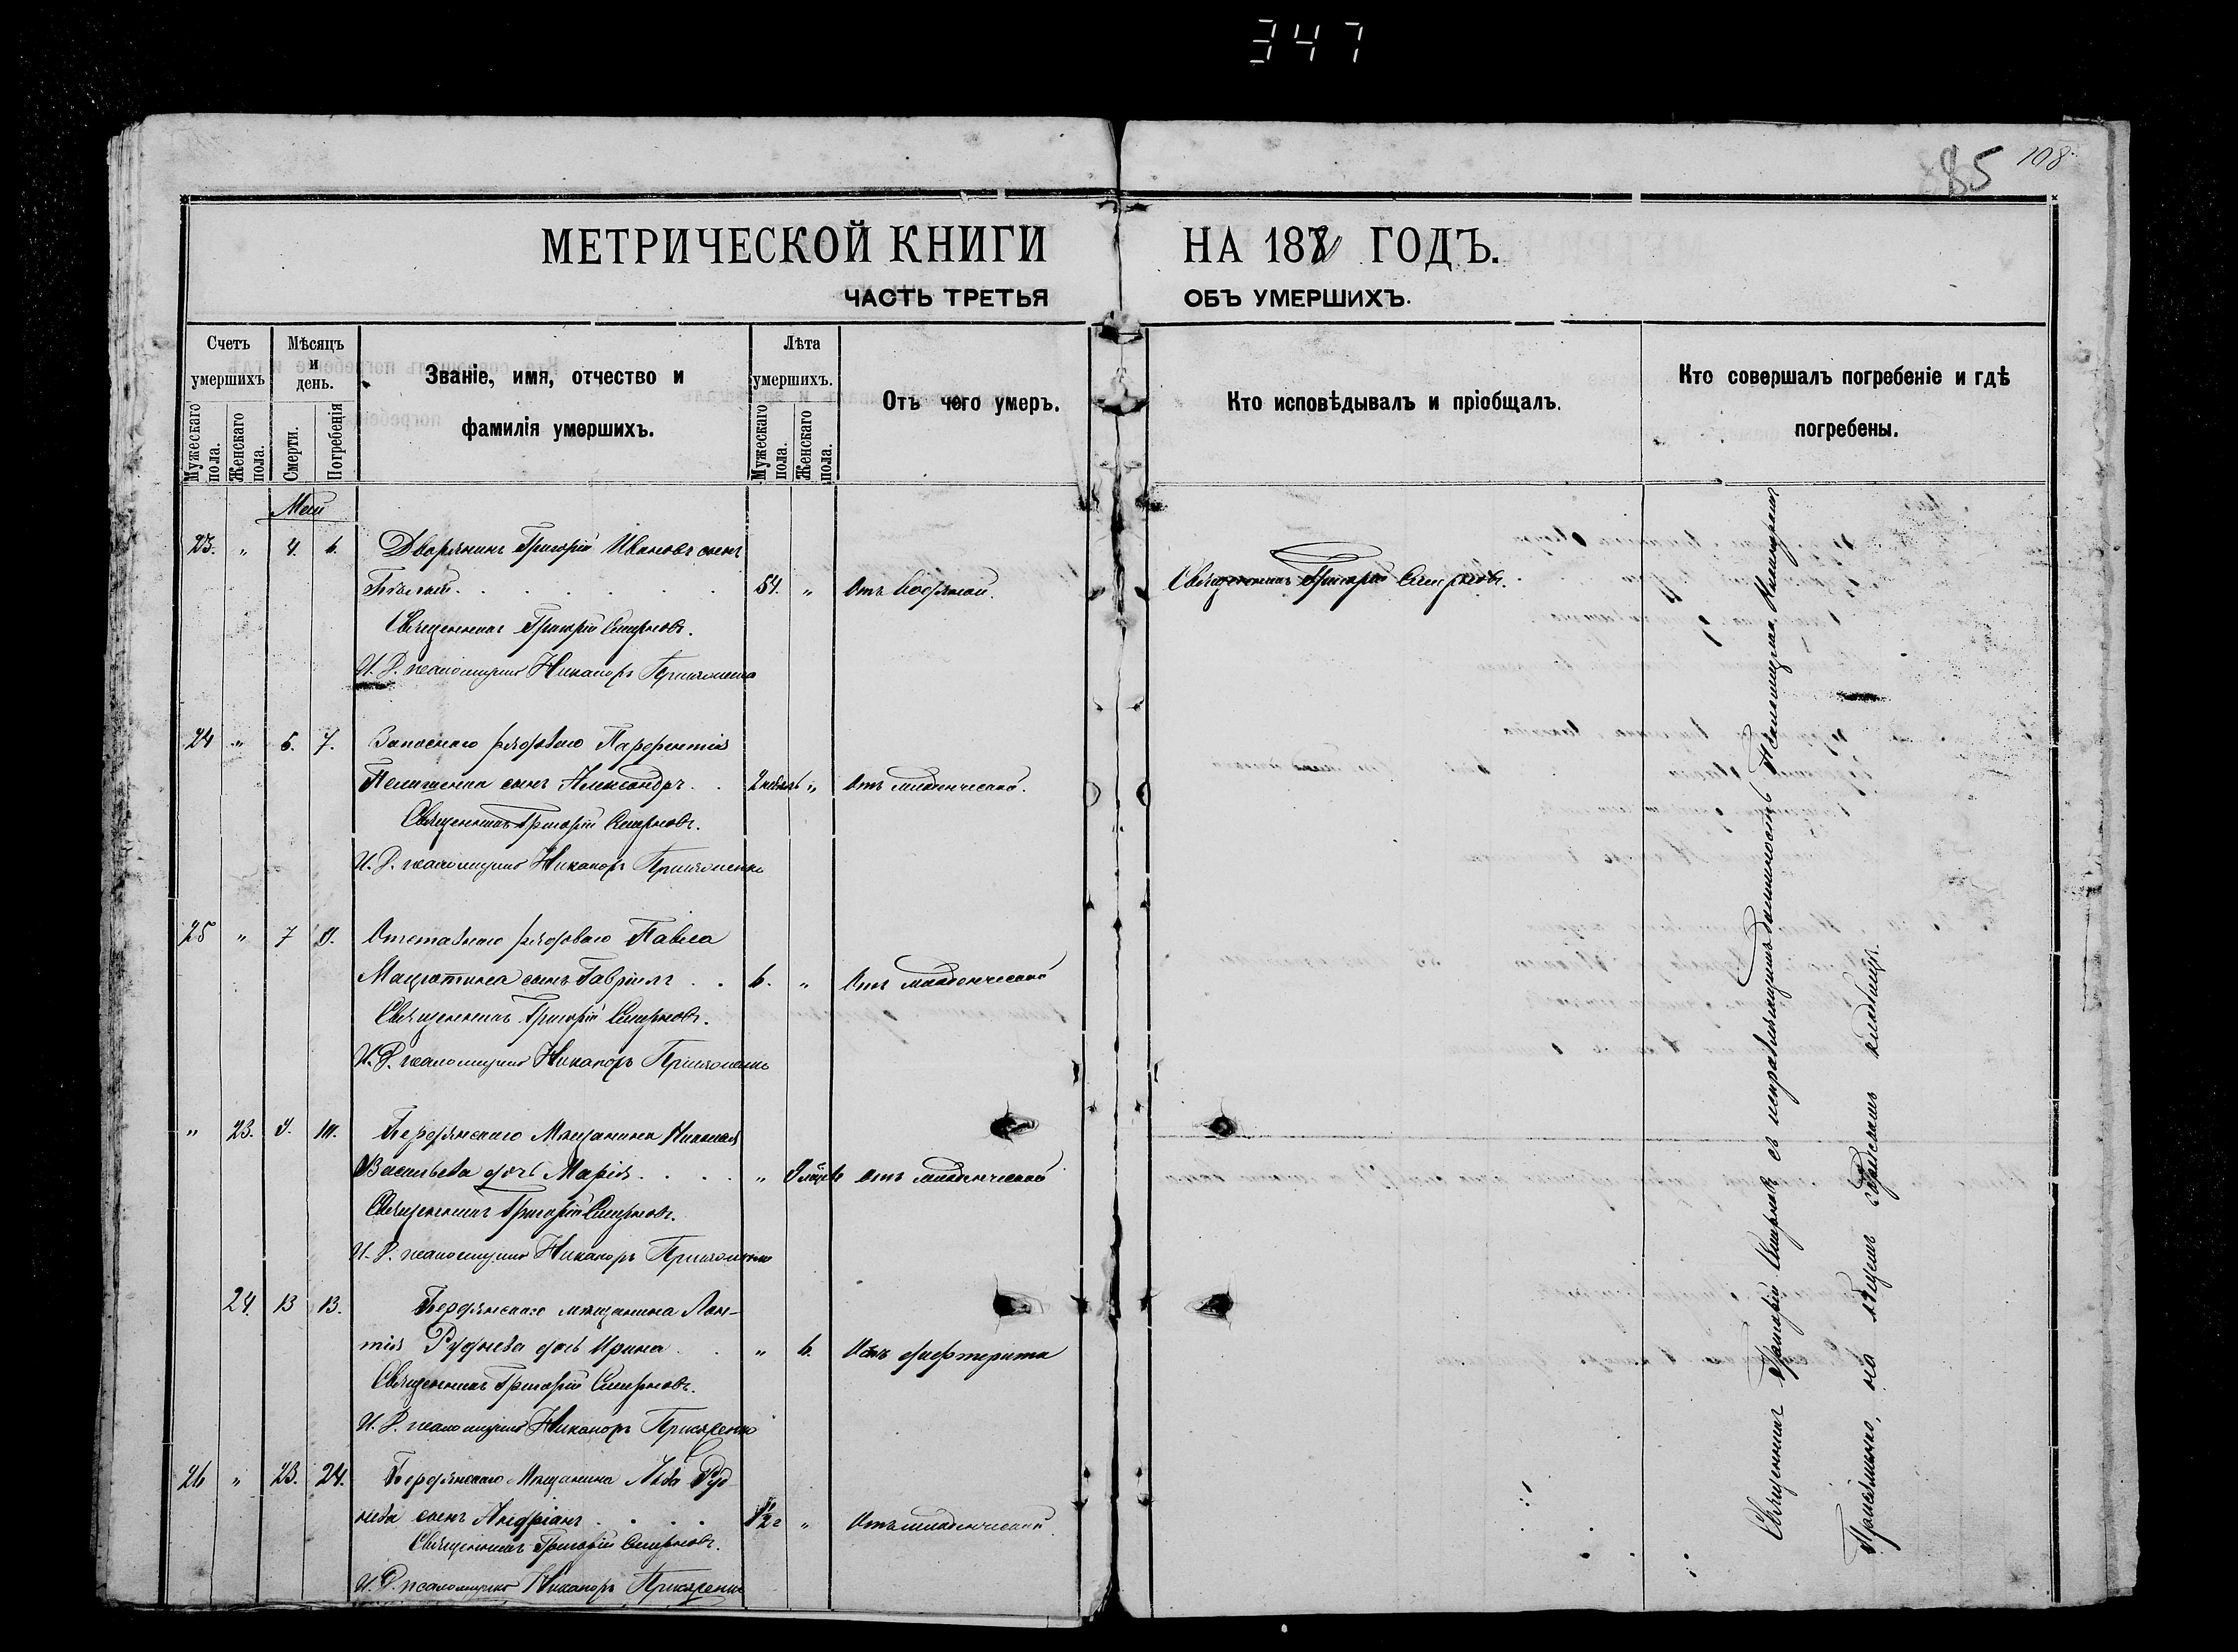 347
85 108.
МЕТРИЧЕСКОЙ КНИГИ НА 188 ГОДЪ.
ЧАСТЬ ТРЕТЬЯ ОБЪ УМЕРШИХЪ.
Счетъ умершихъ
Мужескаго пола.
Женскаго пола.
Мѣсяцъ и день.
Смерти.
Погребенія
Званіе, имя, отчество и фамилія умершихъ.
Лѣта умершихъ.
Мужескаго пола.
Женскаго пола.
Отъ чего умеръ.
Кто исповѣдывалъ и пріобщалъ.
Кто совершалъ погребеніе и гдѣ погребены.
Май
23. " 4. 6. Дворянинъ Григорій Ивановъ сынъ
54. " Отъ водяной. Священникъ Григорій Смирновъ.
Священникъ Григорій Смирновъ.
И. Д. псаломщика Никаноръ
24 " 5. 7. Запаснаго рядоваго Парфентія
сынъ Александръ . . 2 недѣль " Отъ младенческой.
Священникъ Григорій Смирновъ.
И. Д. псаломщика Никаноръ
25 " 7 9. Отставнаго рядоваго Павла
сынъ Гавріилъ . . 6. " Отъ младенческой
Священникъ Григорій Смирновъ.
И. Д. псаломщика Никаноръ
" 23. 9. 10. Бердянскаго Мѣщанина Николая
Васильева дочь Марія . . . . " Отъ младенческой
Священникъ Григорій Смирновъ.
И. Д. псаломщика Никаноръ
24. 13 13. Бердянскаго мѣщанина Леон-
тія Руднева дочь Ирина . . " 6. Отъ дифтерита
Священникъ Григорій Смирновъ.
И. Д. псаломщика Никаноръ
26 " 23. 24. Бердянскаго Мѣщанина Льва Руд-
нева сынъ Андріанъ . . . . " Отъ младенческой.
Священникъ Григорій Смирновъ.
И. Д. псаломщика Никаноръ
Священникъ Григорій Смирновъ съ исправляющимъ должность Псаломщика Никаноромъ
на общемъ приходскомъ кладбищѣ.